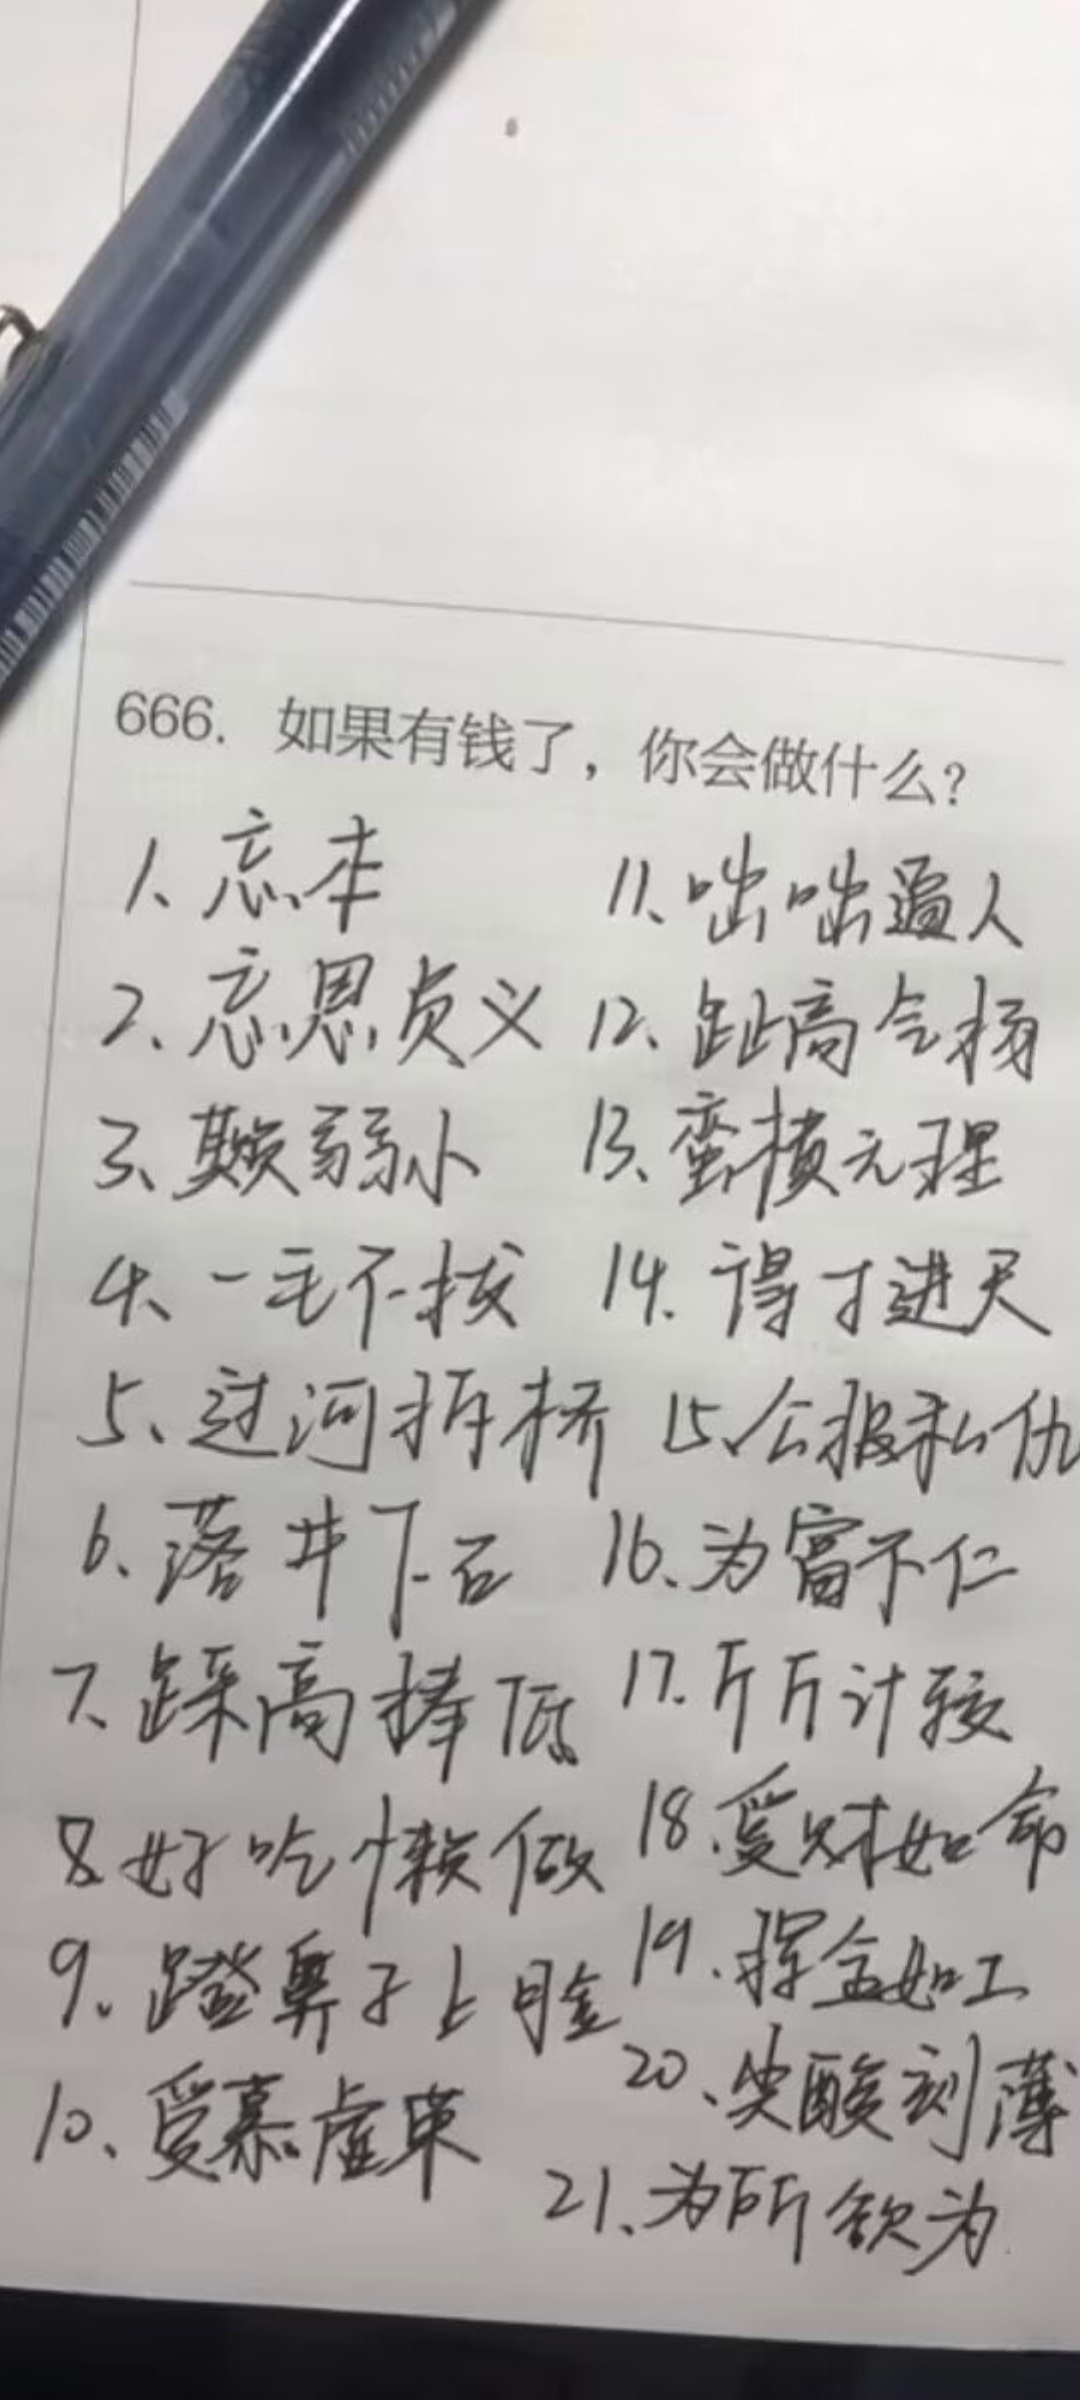 666. 如果有钱了，你会做什么?
1、忘本
2、忘恩负义
3、欺负弱小
4、一毛不拔
5、过河拆桥
6、落井下石
7、踩高捧低
8、好吃懒做
9、蹬鼻子上脸
10、爱慕虚荣
11、咄咄逼人
12、趾高气扬
13、蛮横无理
14、得寸进尺
15、公报私仇
16、为富不仁
17、斤斤计较
18、爱财如命
19、挥金如土
20、尖酸刻薄
21、为所欲为